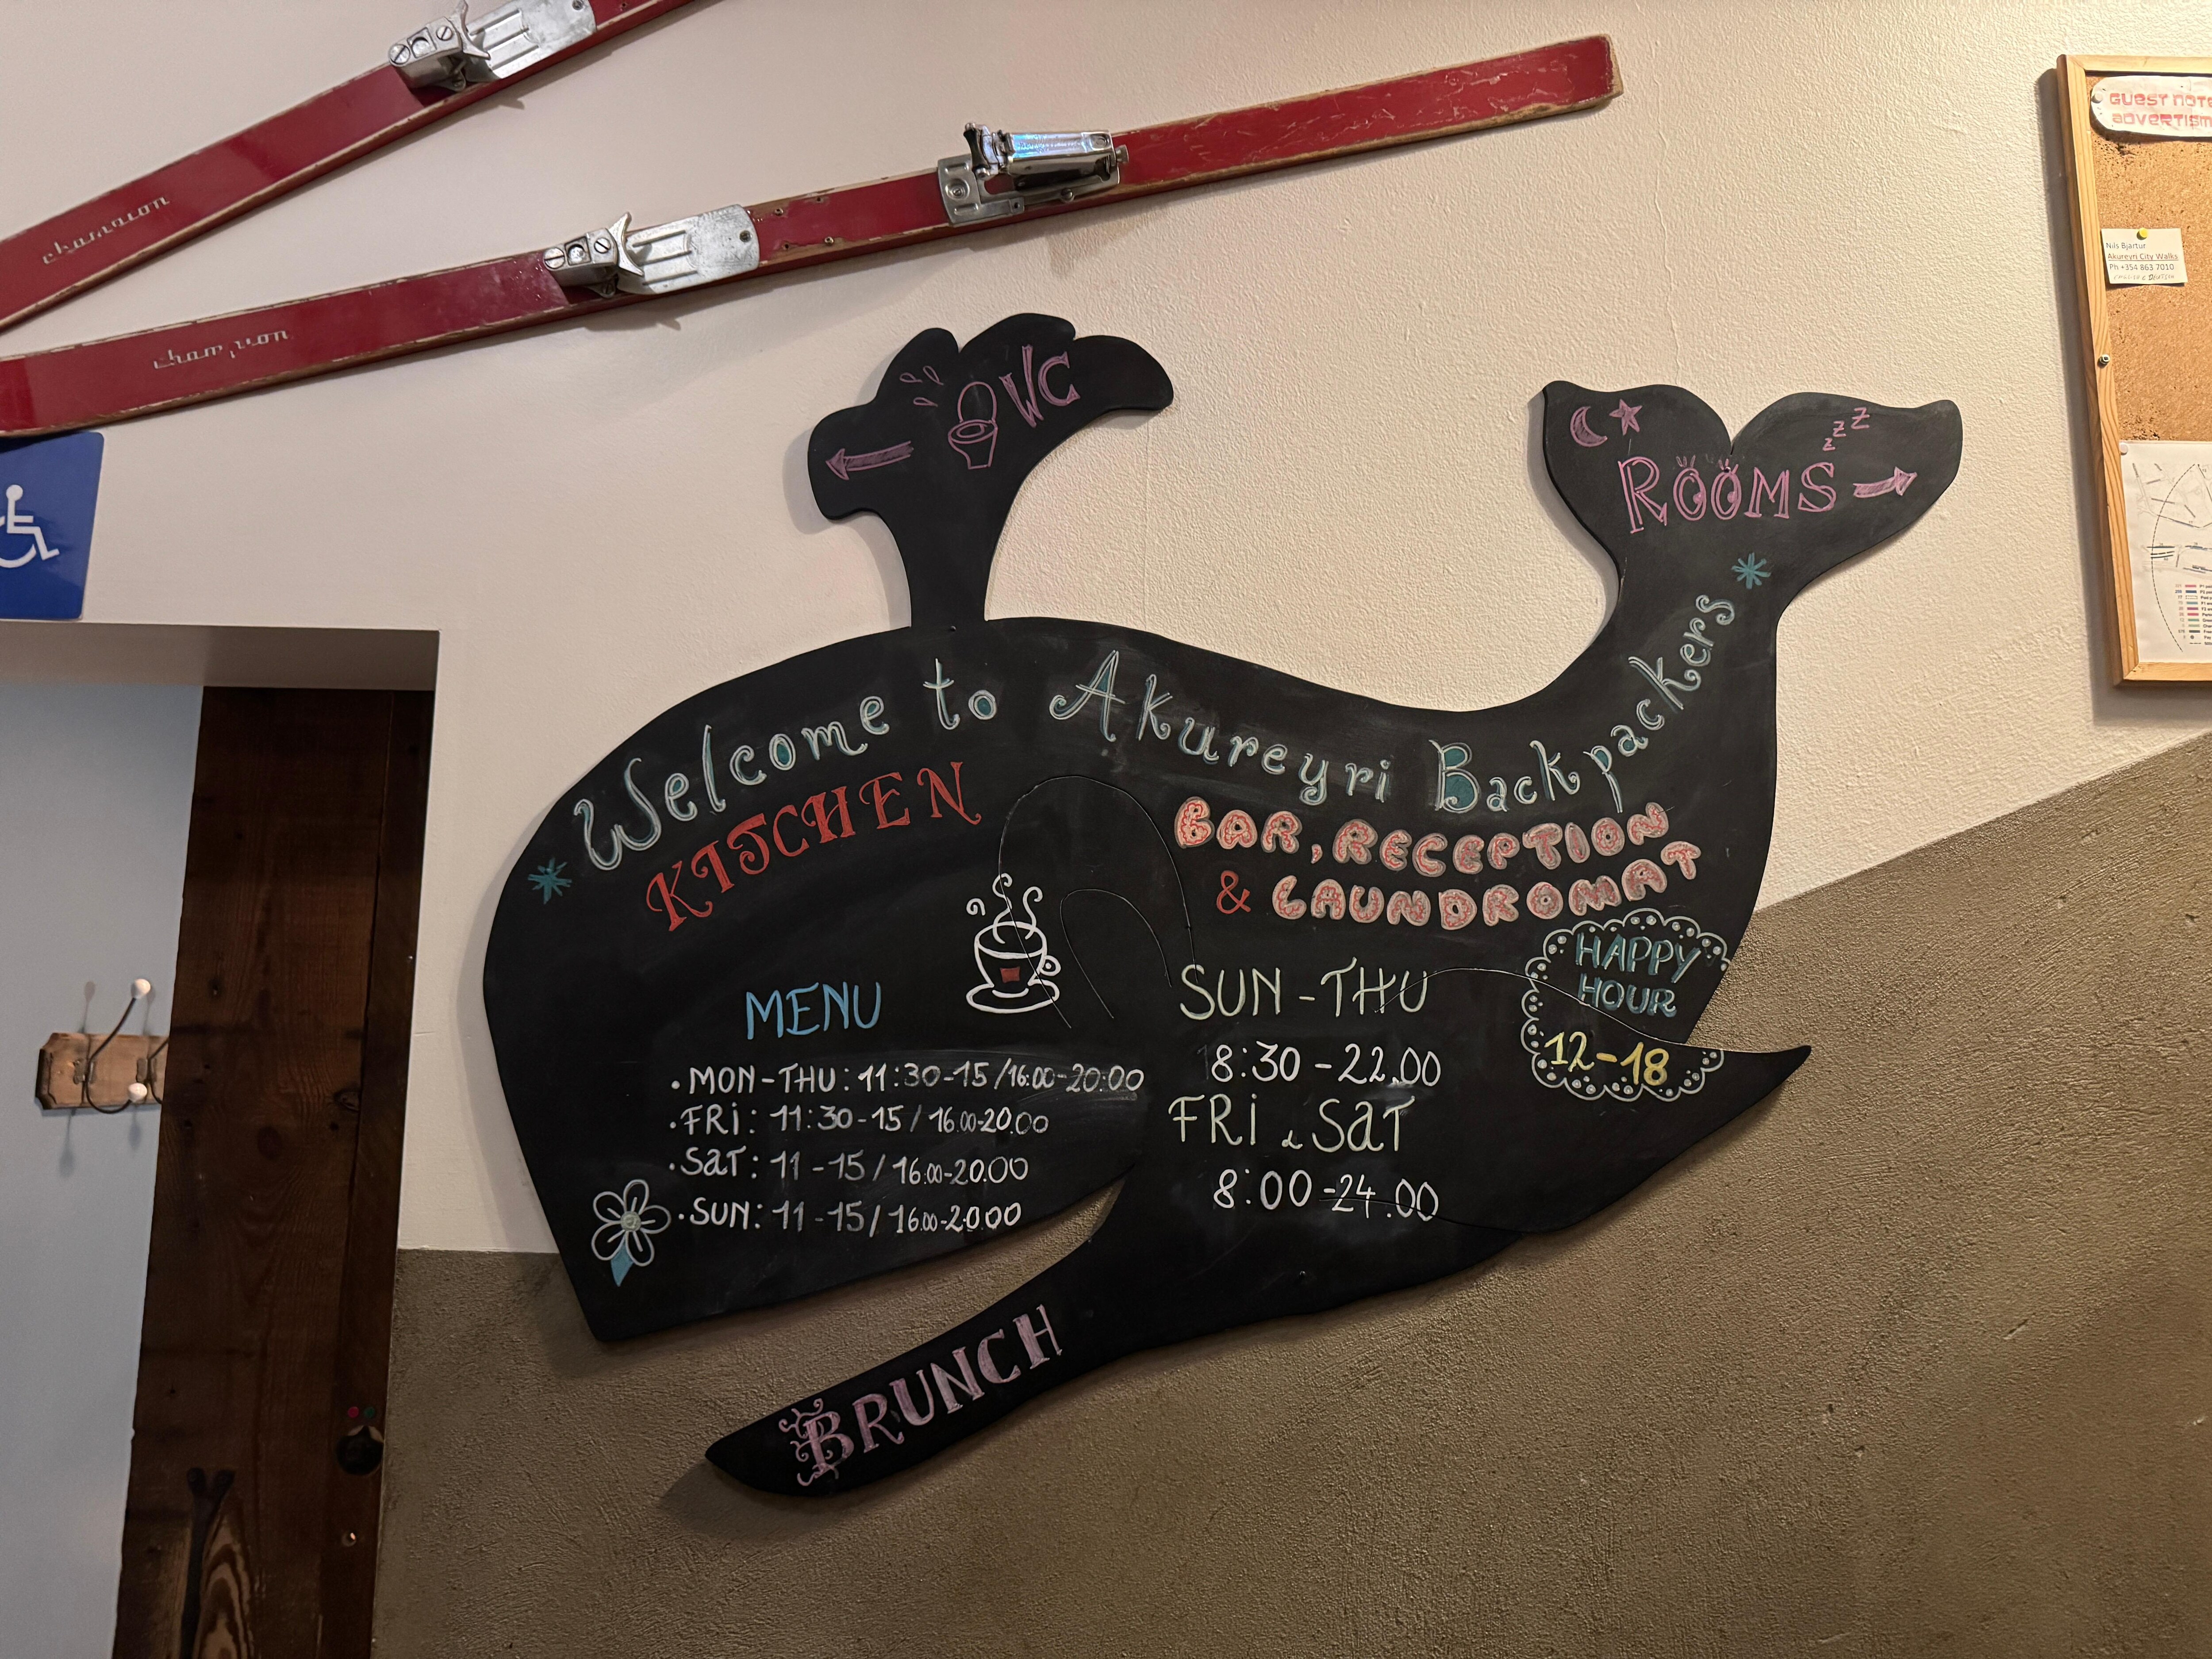 champion
champion
GUEST NOTE
ADVERTISM
Nils Bjartur
Akureyri City Walks
Ph +354 863 7010
WC
ROOMS
z z z
Welcome to Akureyri Backpackers
KITCHEN
MENU
• MON-THU: 11:30-15/16:00-20:00
• FRI: 11:30-15/16.00-20.00
• SAT: 11-15/16.00-20.00
• SUN: 11-15/16.00-20.00
BAR, RECEPTION
& LAUNDROMAT
SUN-THU
8:30-22.00
FRI & SAT
8:00-24.00
HAPPY
HOUR
12-18
BRUNCH